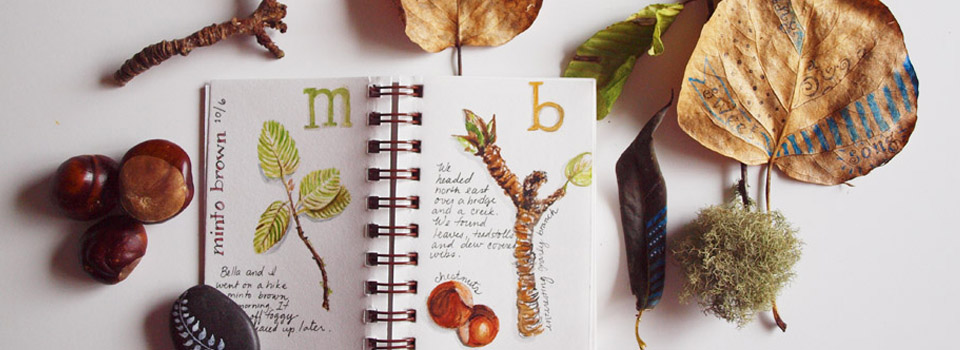 m
minto brown 10/6
Bella and I
went on a hike
minto brown
morning. It
off foggy
up later.
b
We
headed
north east
over a bridge
and a creek.
We found
leaves, toadstools
and dew covered
webs.
chestnuts
interesting gnarly branch
song